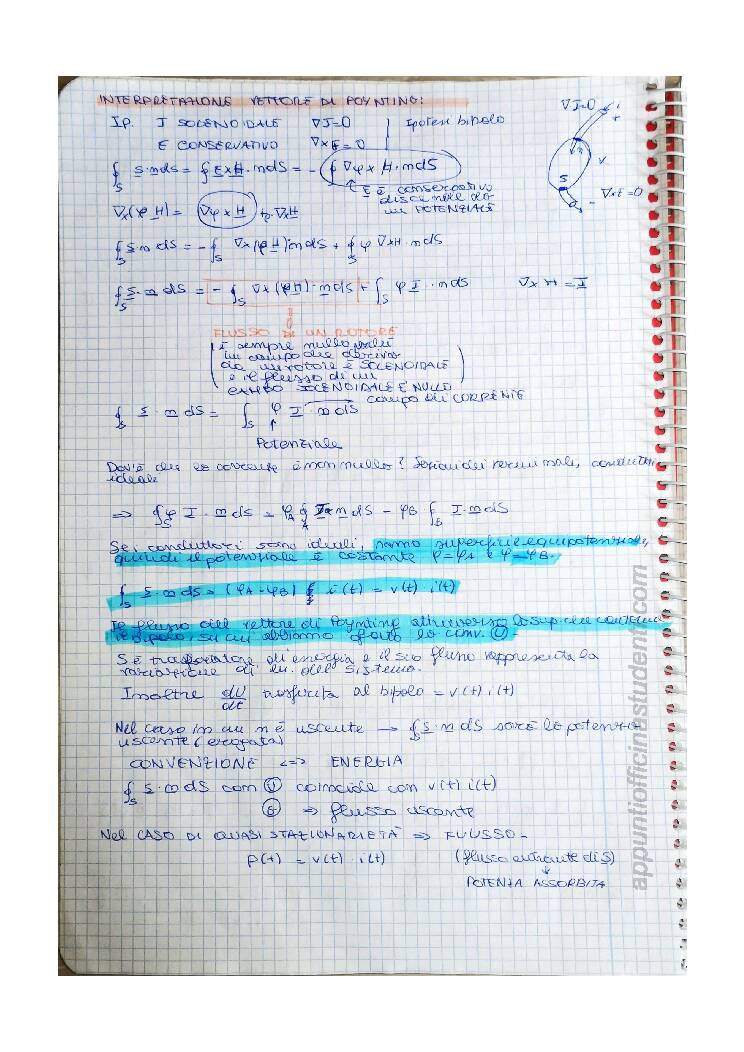 INTERPRETAZIONE VETTORE DI POYNTING:
IP. J SOLENOIDALE ∇J=0 Ipotesi bipolo
E CONSERVATIVO ∇×E=0
∇J=0 i +
V
S
∇×E=0
-
∮S S·n dS = ∮ E×H·n dS = -∮ ∇φ×H·n dS
E è conservativo
discende da
un POTENZIALE
∇×(φH) = ∇φ×H + φ∇×H
∮S S·n dS = -∮S ∇×(φH)·n dS + ∮S φ ∇×H·n dS
∮S S·n dS = -∮S ∇×(φH)·n dS + ∫S φ J·n dS ∇×H = J
FLUSSO DI UN ROTORE
È sempre nullo
un campo che deriva
da un rotore è SOLENOIDALE
e il flusso di un
CAMPO SOLENOIDALE È NULLO
∮S S·n dS = ∫S φ J·n dS campo di CORRENTE
Potenziale
Dov'è che la corrente è non nulla? Sezioni dei terminali, conduttori
ideale
⇒ ∮S φ J·n dS = φA ∮A J·n dS - φB ∫B J·n dS
Se i conduttori sono ideali, hanno superfici equipotenziali,
quindi il potenziale è costante φ=φA e φ=φB.
∮S S·n dS = (φA-φB) i(t) = v(t) i(t)
Il flusso del vettore di Poynting attraverso la sup che contiene
il bipolo, su cui abbiamo fatto la conv. U.
S è trasportatore di energia e il suo flusso rappresenta la
variazione di en. del sistema.
Inoltre dU/dt trasferita al bipolo = v(t) i(t)
Nel caso in cui n è uscente → ∮S S·n dS sarà la potenza
uscente (erogata)
CONVENZIONE <=> ENERGIA
∮S S·n dS con U coincide con v(t) i(t)
G ⇒ flusso uscente
Nel CASO DI QUASI STAZIONARIETÀ ⇒ FLUSSO -
P(t) = v(t) · i(t) (flusso entrante di S)
POTENZA ASSORBITA
appuntiofficinastudenti.com